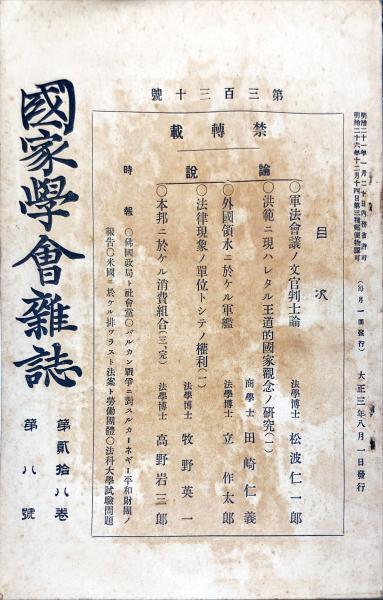 明治二十一年一月二十日內務省許可
明治二十六年十二月十四日第三種郵便物認可
(每月一回發行)　大正三年八月一日發行
第三百三十號
禁轉載
目次
論說
○軍法會議ノ文官判士論　法學博士　松波仁一郎
○洪範ニ現ハレタル王道的國家觀念ノ硏究(一)　商學士　田崎仁義
○外國領水ニ於ケル軍艦　法學博士　立作太郎
○法律現象ノ單位トシテノ權利(二)　法學博士　牧野英一
○本邦ニ於ケル消費組合(三、完)　法學博士　高野岩三郎
時報
○佛國政局ト社會黨○バルカン戰爭ニ對スルカーネギー平和財團ノ
報告○米國ニ於ケル排ツラスト法案ト勞働團體○法科大學試驗問題
國家學會雜誌
第貳拾八卷　第八號